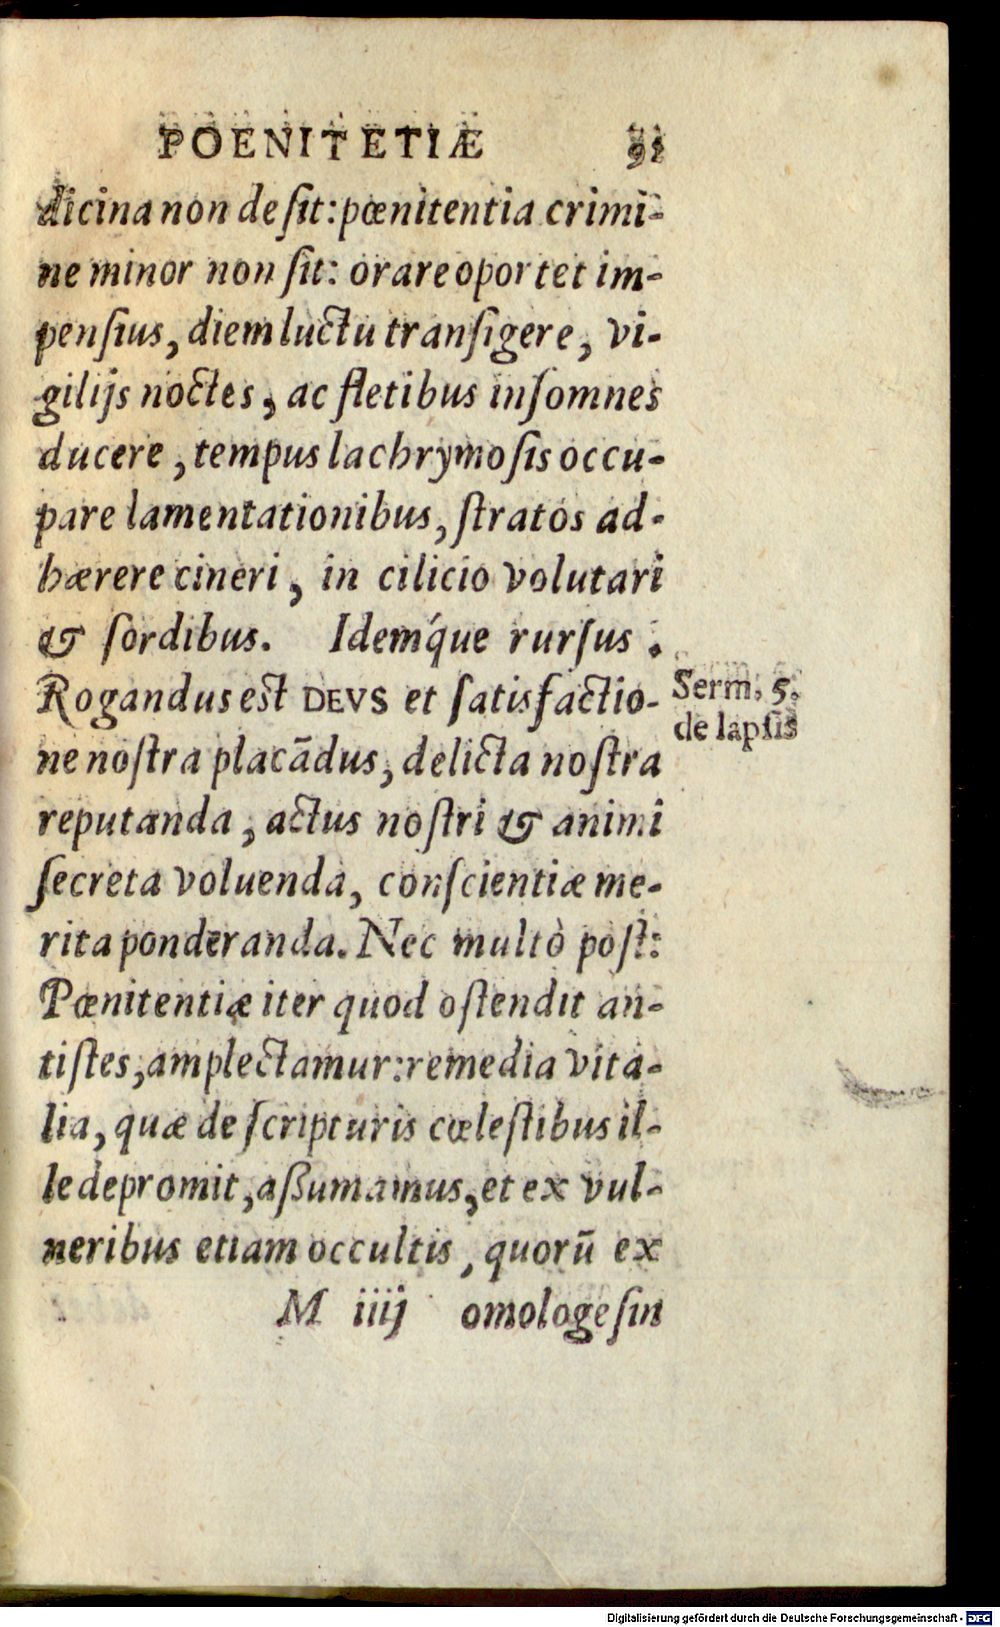 POENITETIÆ 91
dicina non desit: pœnitentia crimi-
ne minor non sit: orare oportet im-
pensius, diem luctu transigere, vi-
gilijs noctes, ac fletibus insomnes
ducere, tempus lachrymosis occu-
pare lamentationibus, stratos ad-
hærere cineri, in cilicio volutari
& sordibus. Idemq́ue rursus.
Rogandus est DEVS et satisfactio-
ne nostra placādus, delicta nostra
reputanda, actus nostri & animi
secreta voluenda, conscientiæ me-
rita ponderanda. Nec multò post:
Pœnitentiæ iter quod ostendit an-
tistes, amplectamur: remedia vita-
lia, quæ de scripturis cœlestibus il-
le depromit, aßumamus, et ex vul-
neribus etiam occultis, quorū ex
M iiij omologesin
Serm. 5.
de lapsis
Digitalisierung gefördert durch die Deutsche Forschungsgemeinschaft - DFG